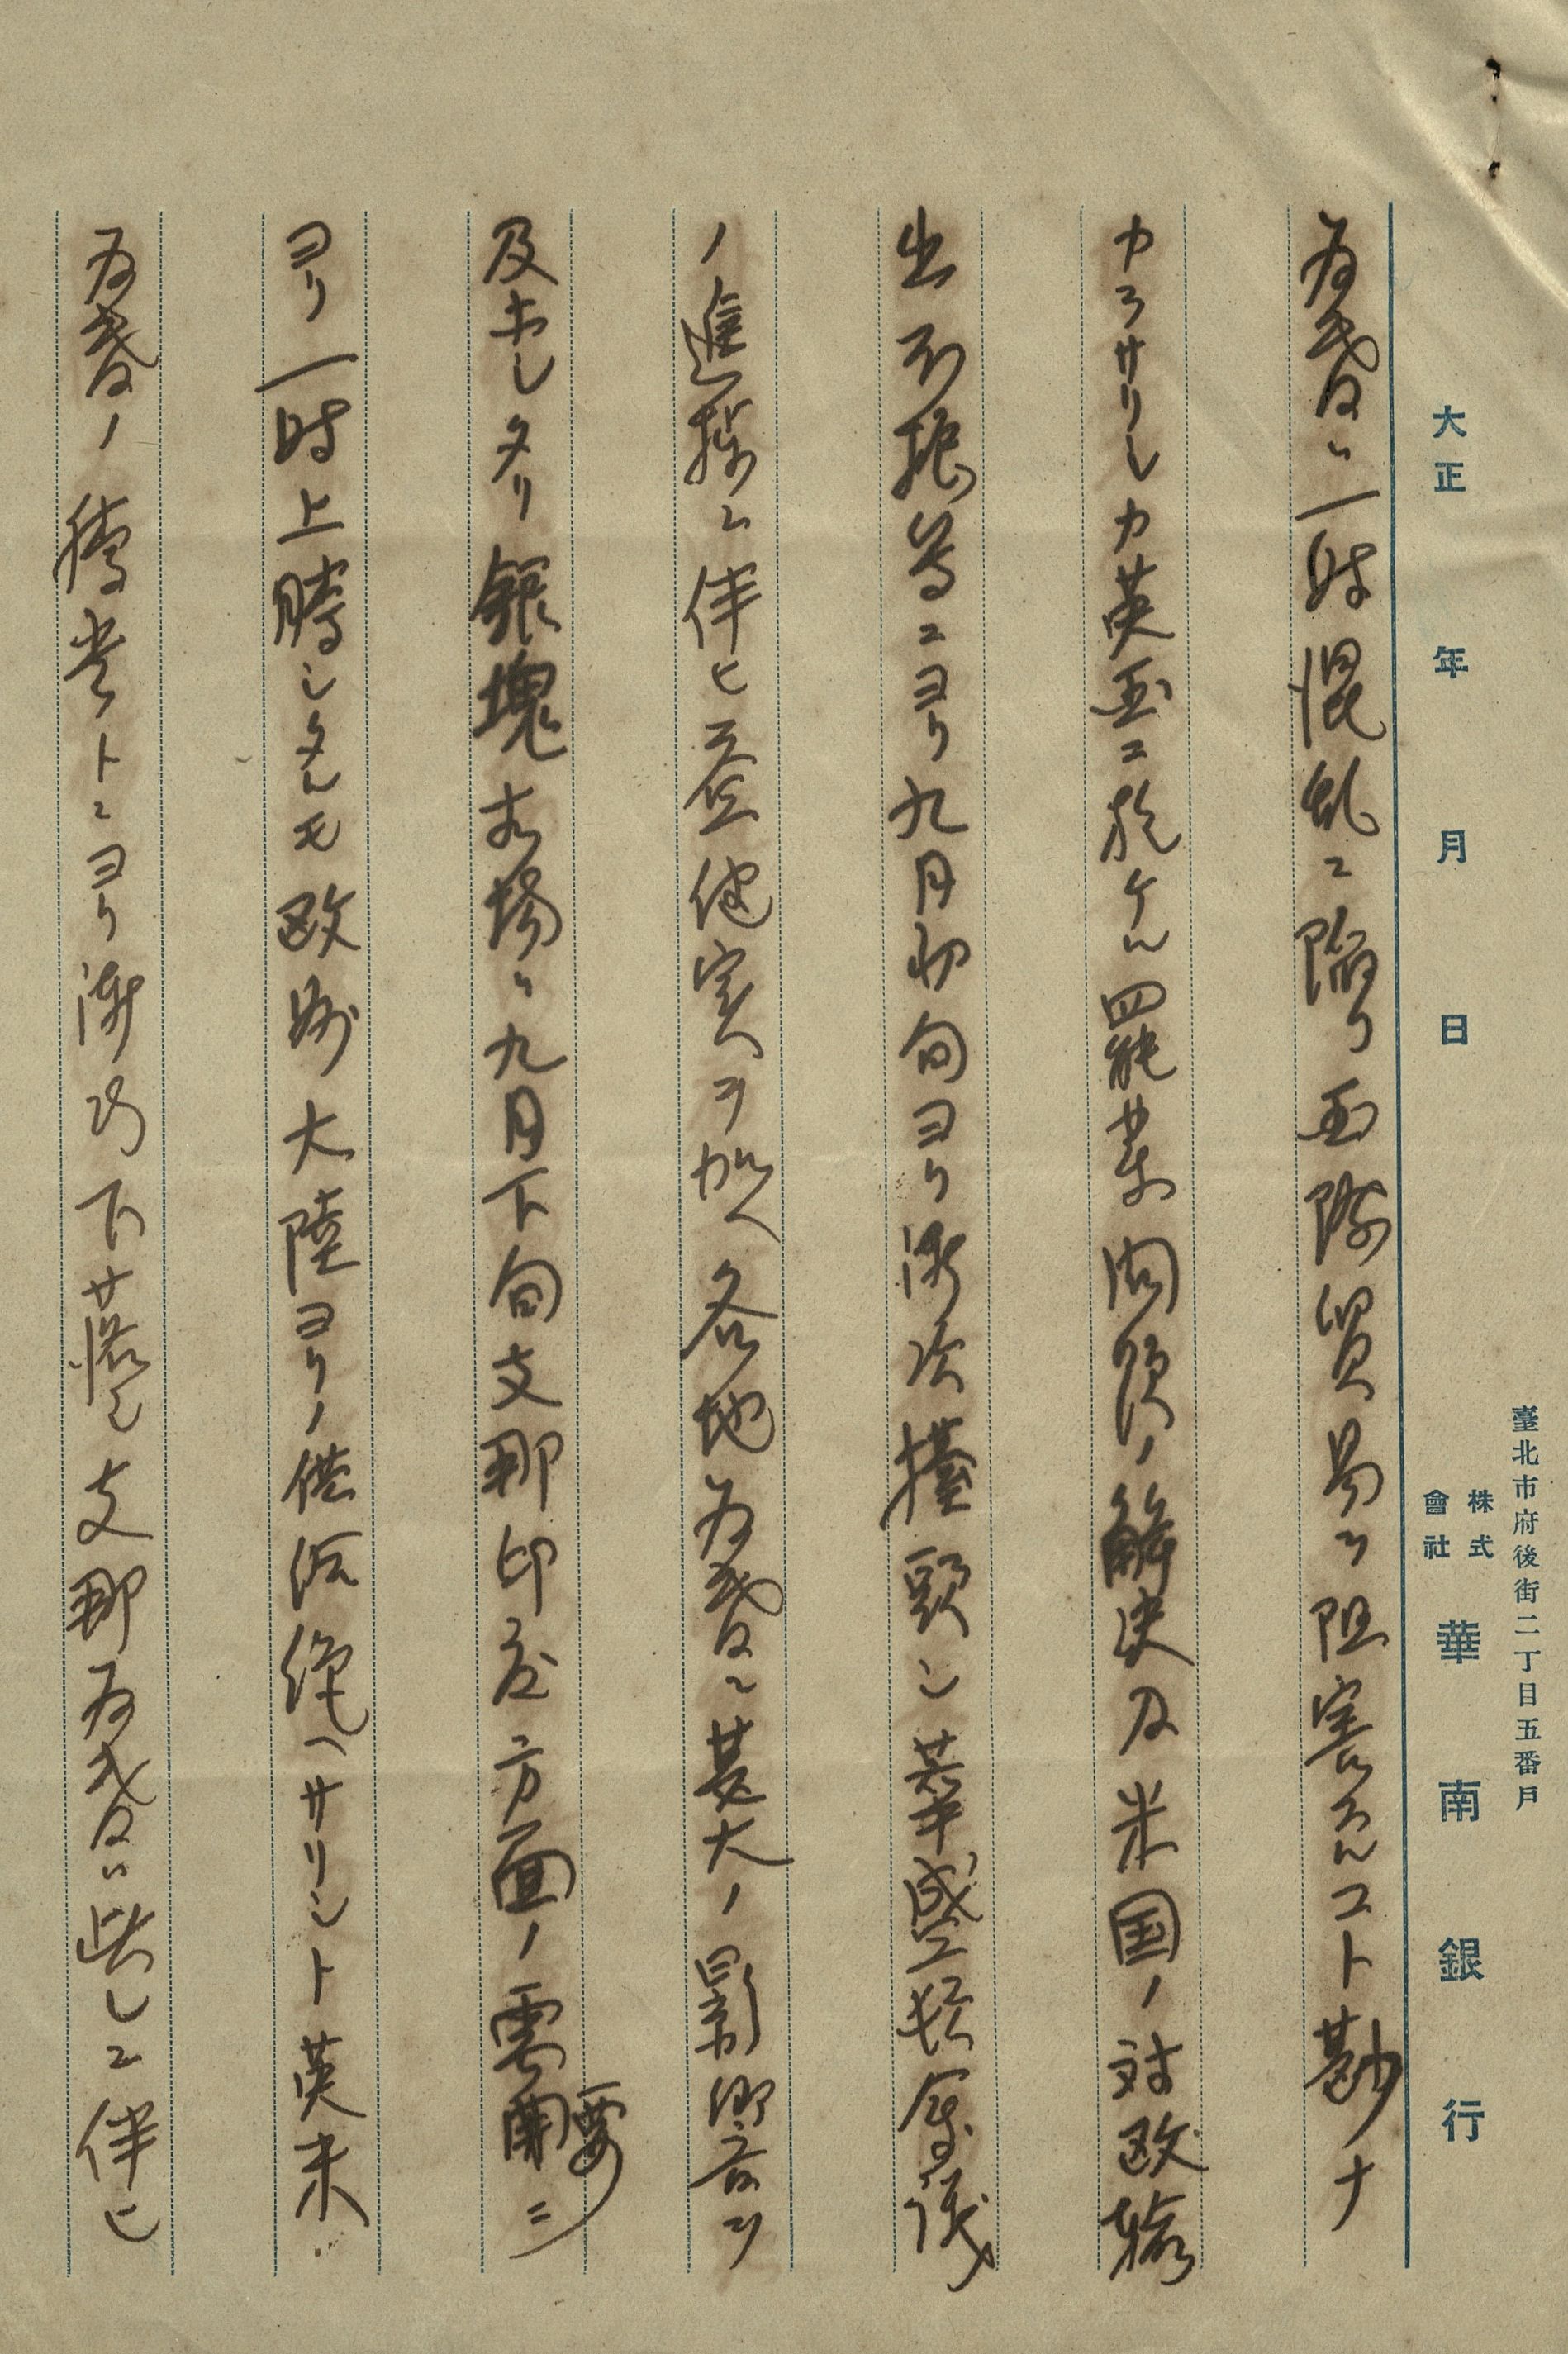 臺北市府後街二丁目五番戸
株式會社 華南銀行
大正 年 月 日
為替ハ一時混乱ニ陥リ国際貿易ヲ阻害スルコト尠ナ
カラサリシカ英国ニ於ケル罷業問題ノ解決及米国ノ対欧輸
出不振等ニヨリ九月中旬ヨリ漸次擡頭シ華盛頓会議
ノ進捗ニ伴ヒ益健実ヲ加ヘ各地為替ニ甚大ノ影響ヲ
及ホシタリ銀塊市場ハ九月下旬支那印度方面ノ需要ニ
ヨリ一時上騰シタルモ欧州大陸ヨリノ供給絶ヘサリシト英米
為替ノ騰貴トニヨリ漸次下落シ支那為替ハ此レニ伴ヒ